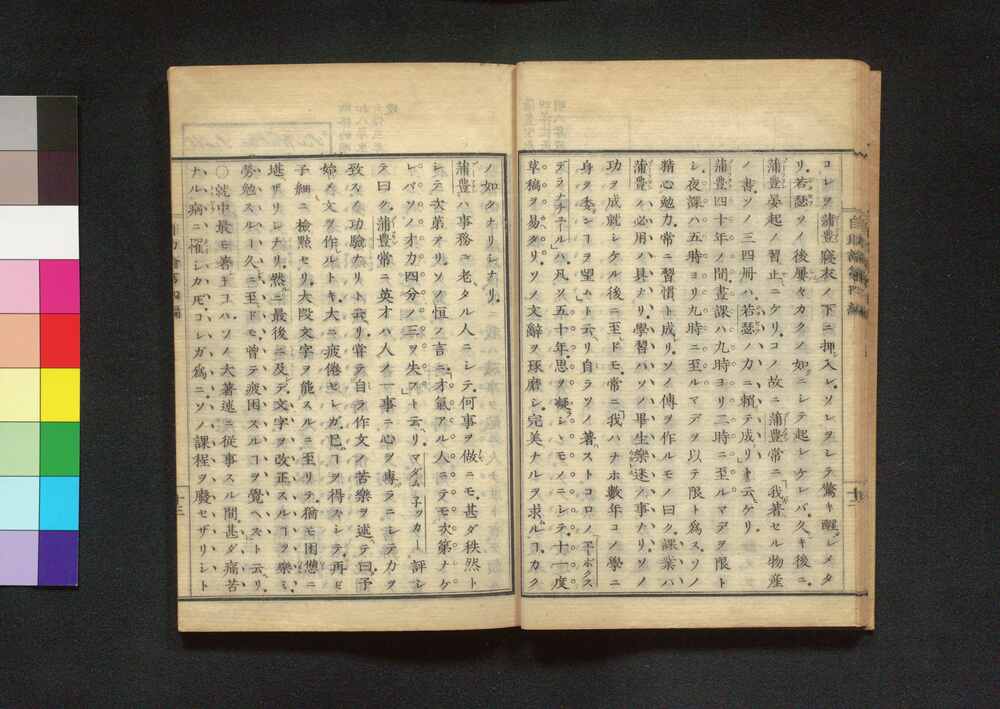 コレヲ蒲豊寢衣ノ下ニ押入レ、ソレヲシテ驚キ醒シメタ
リ、若瑟ソノ後屢々カクノ如ニシテ起シケレバ、久キ後ニ
蒲豊晏起ノ習止ニケリ、コノ故ニ蒲豊常ニ我著セル物産
ノ書ツノ三四冊ハ若瑟ノ力ニ賴テ成リト云ケリ
蒲豊四十年ノ間、晝課ハ九時ヨリ二時ニ至ルマデヲ限ト
シ、夜課ハ五時ヨリ九時ニ至ルマデヲ以テ限ト爲ス、ソノ
精心勉力、常ニ習慣ト成リ、ソノ傳ヲ作ルモノ曰ク、課業ハ
蒲豊ノ必用ノ具ナリ、學習ハソノ畢生樂迷ノ事ナリ、ソノ
功ヲ成就シケル後ニ至ドモ、常ニ我ハナホ數年コノ學ニ
身ヲ委ンコヲ望ムト云リ、自ラソノ著ストコロノ
ハ、凡ソ五十年思ヲ凝シヽモノニシテ、十一度
草稿ヲ易タリ、ソノ文辭ヲ琢磨シ、完美ナルヲ求ルコ、カク
ノ如クナリシナリ、
蒲豊ハ事務ニ老タル人ニシテ、何事ヲ做ニモ甚ダ秩然ト
シテ次第アリ、ソノ恒ノ言ニ、才氣アル人ニテモ次第ナケ
レバ、ソノ才力四分ノ三ヲ失フト云リ、マダム子ッカー評シ
テ曰ク、蒲豊常ニ英才ハ人ノ一事ニ心ヲ專ラニシテ力ヲ
致スノ功驗ナリト云リ、嘗テ自ラ作文ノ苦樂ヲ述テ曰、予
始メ文ヲ作ルトキ、大ニ疲倦セシガ、已コヲ得ズシテ、再ビ
子細ニ檢點セリ、大段文字ヲ能スルニ至リテ、猶モ困憊ニ
堪ザリシナリ、然ニ最後ニ及デ、文字ヲ改正スルコヲ樂ミ、
勞勉スルコ久ニ至ドモ、曾テ疲困スルコヲ覺ヘズト云リ、
○就中最モ希ナコハ、ソノ大著述ニ從事スル間、甚ダ痛苦
ナル病ニ罹シカドモ、コレガ爲ニソノ課程ヲ廢セザリシト